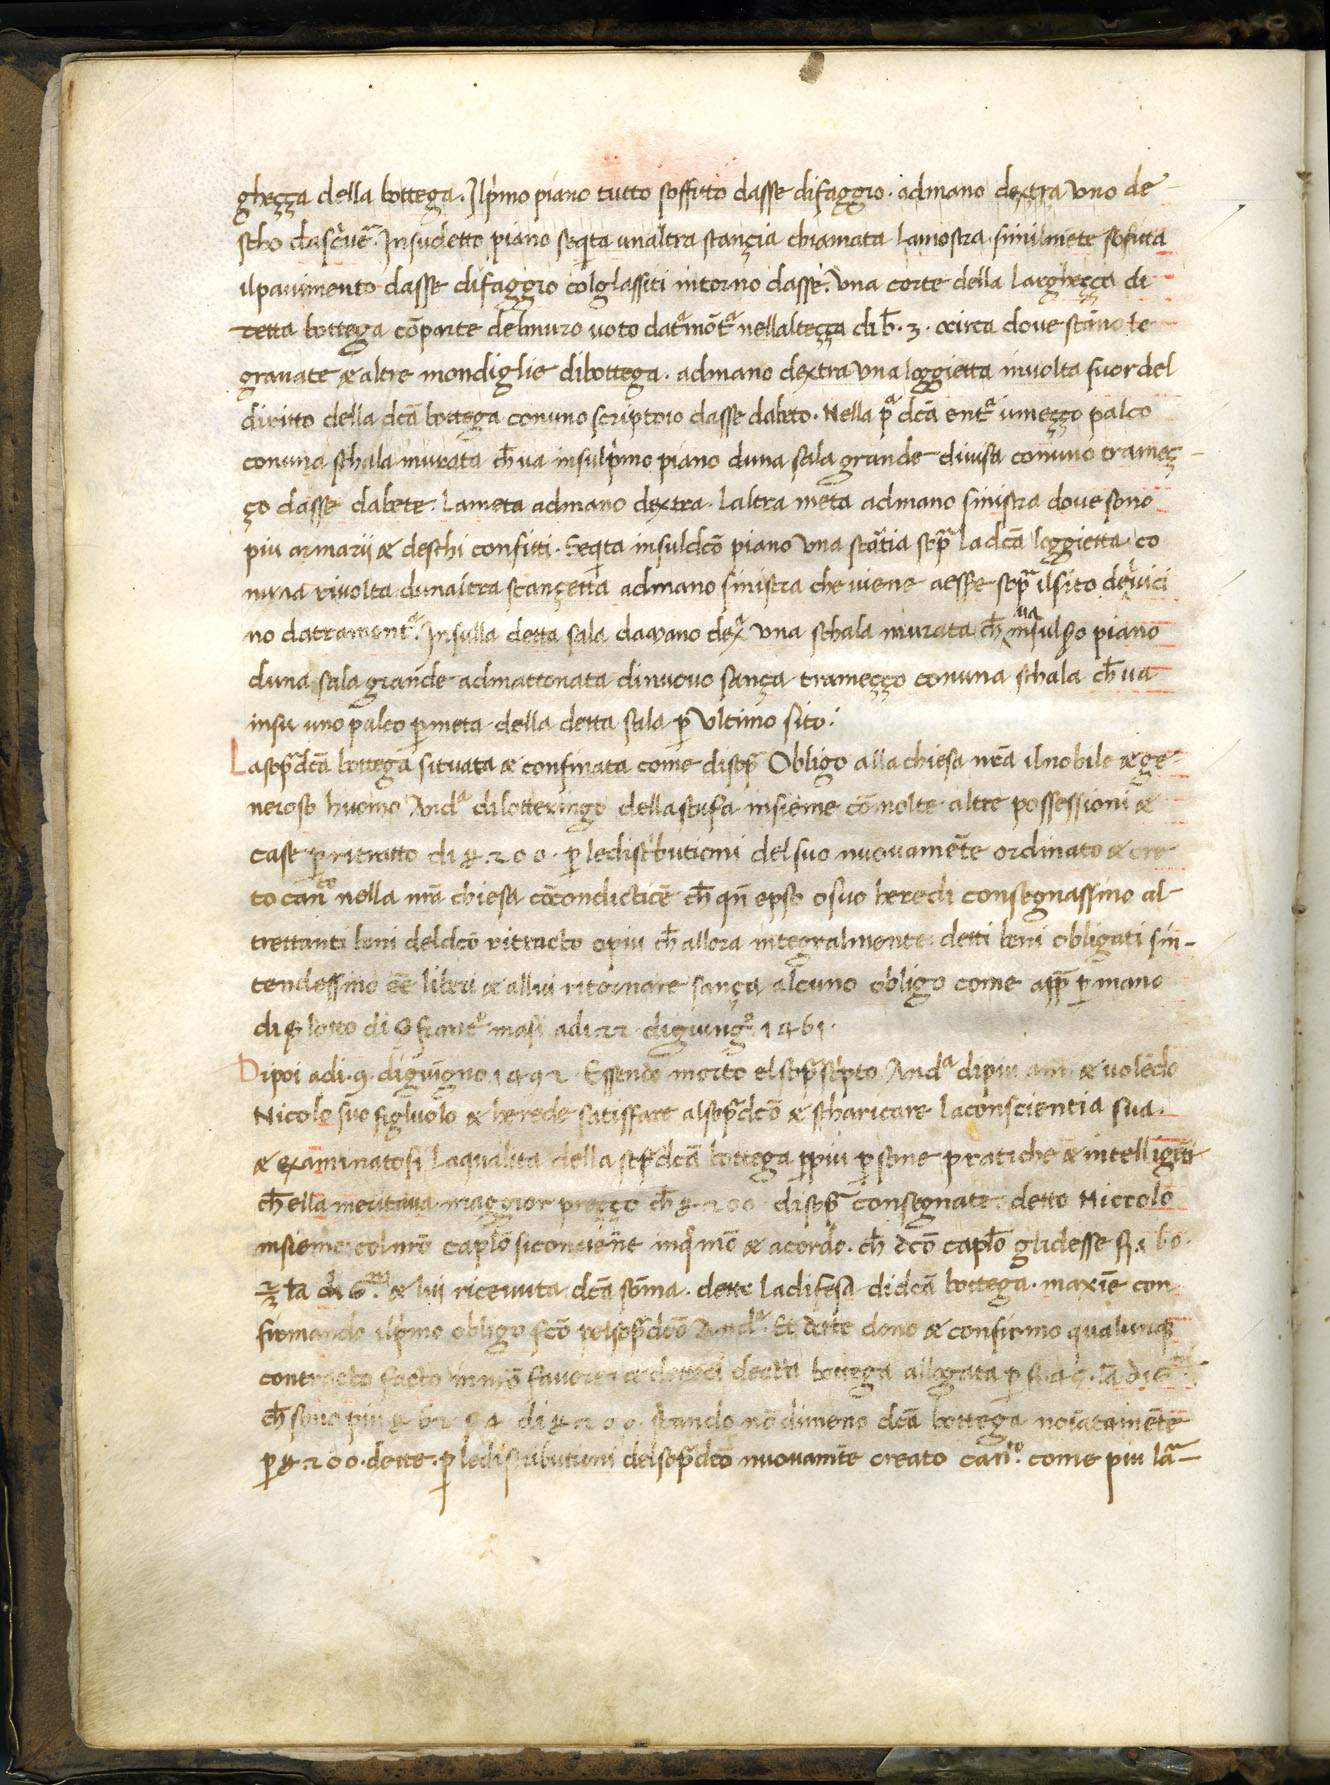 gheçça della bottega. Ilp͛mo piano tutto soffitto dasse difaggio. admano dextra vno de
scho dascriuē. Insudetto piano seq̄ta unaltra stançia chiamata lamostra. similmēte sofitta
ilpauimento dasse difaggio colglassiti intorno dasse. vna corte della largheçça di
detta bottega cō parte delmuro uoto nellalteçça di b̄. 3. ocirca doue stāno le
granate & altre mondiglie dibottega. admano dextra vna loggietta inuolta fuor del
diritto della dc̄a bottega conuno scriptoio dasse dabeto. Nella p̄ᵃ dc̄a entᵃ umeçço palco
conuna schala murata ch̄ ua insulp͛mo piano duna sala grande diuisa conuno trameç
ço dasse dabete. lameta admano dextra. laltra meta admano sinistra doue sono
piu armarij & deschi confitti. Seq̄ta insuldc̄o piano vna stātia sopᵃ ladc̄a loggietta. co
nuna riuolta dunaltra stançetta admano sinistra che uiene aesse sopᵃ ilsito deuici
no datramontᵃ. Insulla detta sala damano dexᵃ vna schala murata ch̄ ua insulsᵒo piano
duna sala grande admattonata dinuouo sança trameçço conuna schala ch̄ ua
insu uno palco p̄ meta della detta sala p̄ vltimo sito:
Lasopᵃdc̄a bottega situata & confinata come disopᵃ Obligo alla chiesa nrā ilnobile & ge
neroso huomo Andᵃ dilotteringo dellastufa insieme cō molte altre possessioni &
case p̄ ritratto di 200. p̄ ledistributioni delsuo nuouamēte ordinato & cre
to canᶜᵒ nella nrā chiesa cō condictiōe ch̄ qn̄ epso osuo heredi consegnassino al
trettanti beni deldc̄o ritracto opiu ch̄ allora integralmente detti beni obligati sin-
tendessino eē liberi & allui ritornare sança alcuno obligo come app̄ p̄ mano
di S lotto di S francᵒ masi adi 22 digiungᵒ. 1461.
Dipoi adi. 9. digiugno. 1492. Essendo morto elsopᵃscp̄to Andᵃ dipiu ani & uolēdo
Nicolo suo figluolo & herede satisfare alsopᵃdc̄o & scharicare laconscientia sua.
& examinatosi laqualita della sopᵃdc̄a bottega p̄ piu p̄sone pratiche & intelligēti
ch̄ ella meritaua maggior preçço ch̄ 200 disopᵃ consegnate. detto Niccolo
insieme colnr̄o caplo siconuiene inq̄ mō & acordo. ch̄ dc̄o caplo glidesse 60.
& lui riceuuta dc̄a sōma. dette ladifesa didc̄a bottega. maxiē con
firmando ilp͛mo obligo fc̄o pelsopᵃdc̄o Andᵃ. Et dette dono & confirmo qualunq̄
contracto facto innrō fauore & detta bottega allogata p̄
ch̄ sono piu di 200. stando nō dimeno dc̄a bottega noīatamēte
p̄ 200. dette. p̄ ledistributioni delsopᵃdc̄o nuouamēte creato canᶜᵒ. come piu lā-